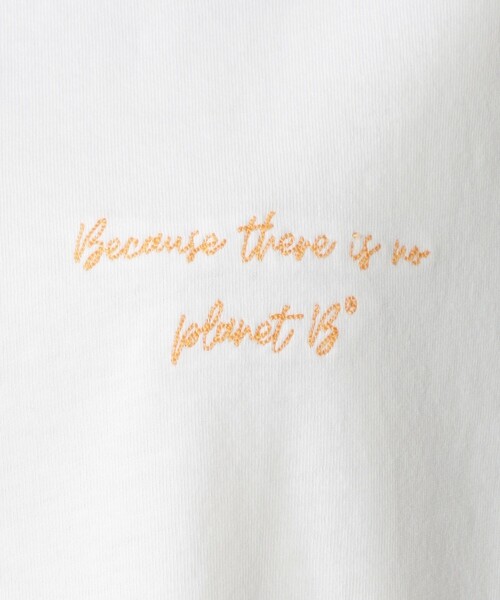 Because there is no
planet B®